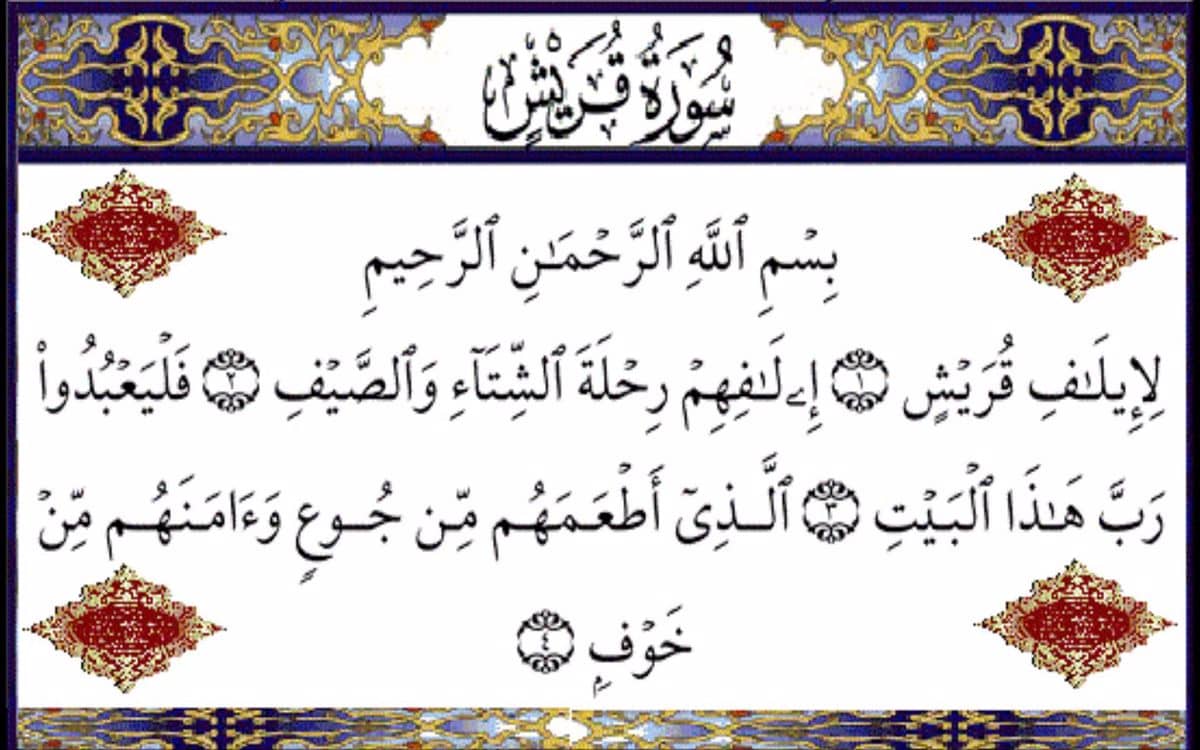 سُورَةُ قُرَيْشٍ
بِسْمِ ٱللَّهِ ٱلرَّحْمَـٰنِ ٱلرَّحِيمِ
لِإِيلَـٰفِ قُرَيْشٍ ۝١ إِۦلَـٰفِهِمْ رِحْلَةَ ٱلشِّتَآءِ وَٱلصَّيْفِ ۝٢ فَلْيَعْبُدُوا۟
رَبَّ هَـٰذَا ٱلْبَيْتِ ۝٣ ٱلَّـذِىٓ أَطْعَمَهُم مِّن جُـوعٍ وَءَامَنَهُـم مِّنْ
خَوْفٍۭ ۝٤